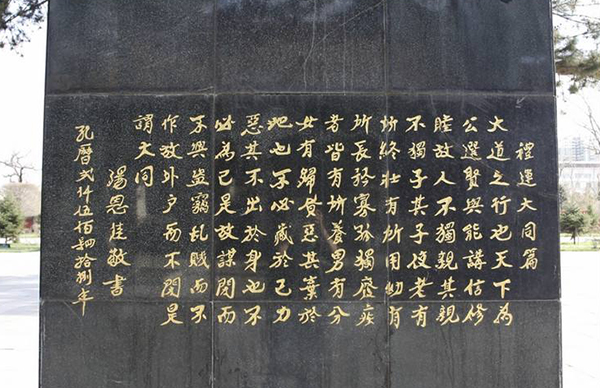 禮運大同篇
大道之行也天下為
公選賢與能講信修
睦故人不獨親其親
不獨子其子使老有
所終壯有所用幼有
所長矜寡孤獨廢疾
者皆有所養男有分
女有歸貨惡其棄於
地也不必藏於己力
惡其不出於身也不
必為己是故謀閉而
不興盜竊乱賊而不
作故外戶而不閉是
謂大同
湯恩佳敬書
孔曆貳仟伍佰肆拾捌年